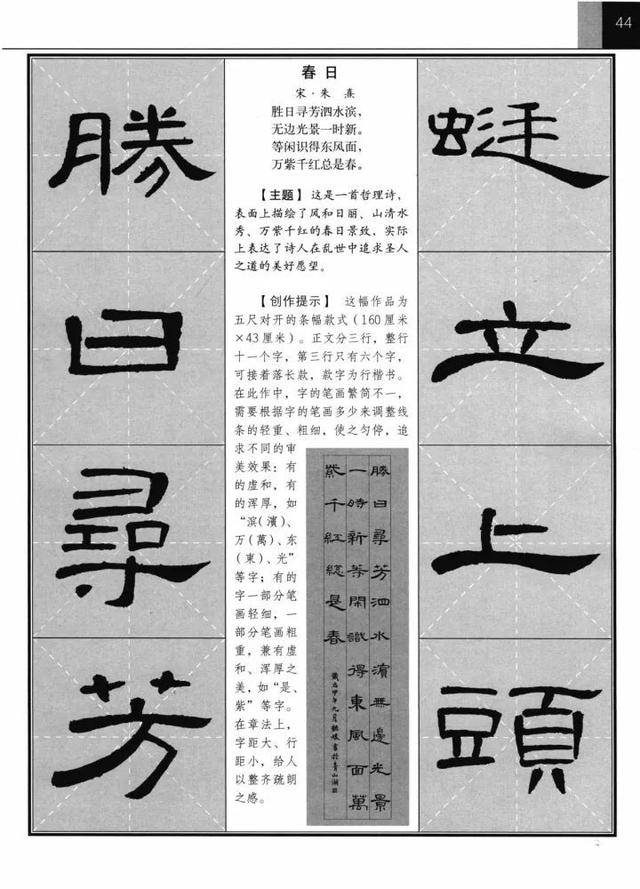 44
蜓
立
上
頭
春日
宋·朱 熹
胜日寻芳泗水滨，
无边光景一时新。
等闲识得东风面，
万紫千红总是春。
【主题】 这是一首哲理诗，
表面上描绘了风和日丽、山清水
秀、万紫千红的春日景致，实际
上表达了诗人在乱世中追求圣人
之道的美好愿望。
【创作提示】 这幅作品为
五尺对开的条幅款式（160厘米
×43厘米）。正文分三行，整行
十一个字，第三行只有六个字，
可接着落长款，款字为行楷书。
在此作中，字的笔画繁简不一，
需要根据字的笔画多少来调整线
条的轻重、粗细，使之匀停，追
求不同的审
美效果：有
的虚和，有
的浑厚，如
“滨（濱）、
万（萬）、东
（東）、光”
等字；有的
字一部分笔
画轻细，一
部分笔画粗
重，兼有虚
和、浑厚之
美，如“是、
紫”等字。
在章法上，
字距大、行
距小，给人
以整齐疏朗
之感。
勝日尋芳泗水濱無邊光景
一時新等閑識得東風面萬
紫千紅總是春
勝
日
尋
芳